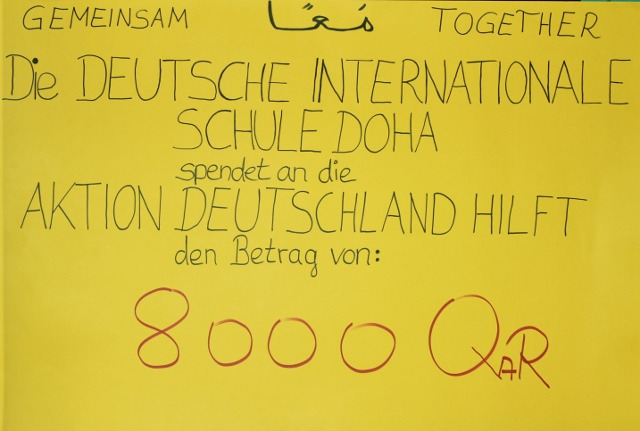 GEMEINSAM مَعًا TOGETHER
Die DEUTSCHE INTERNATIONALE
SCHULE DOHA
spendet an die
AKTION DEUTSCHLAND HILFT
den Betrag von:
8000 QAR